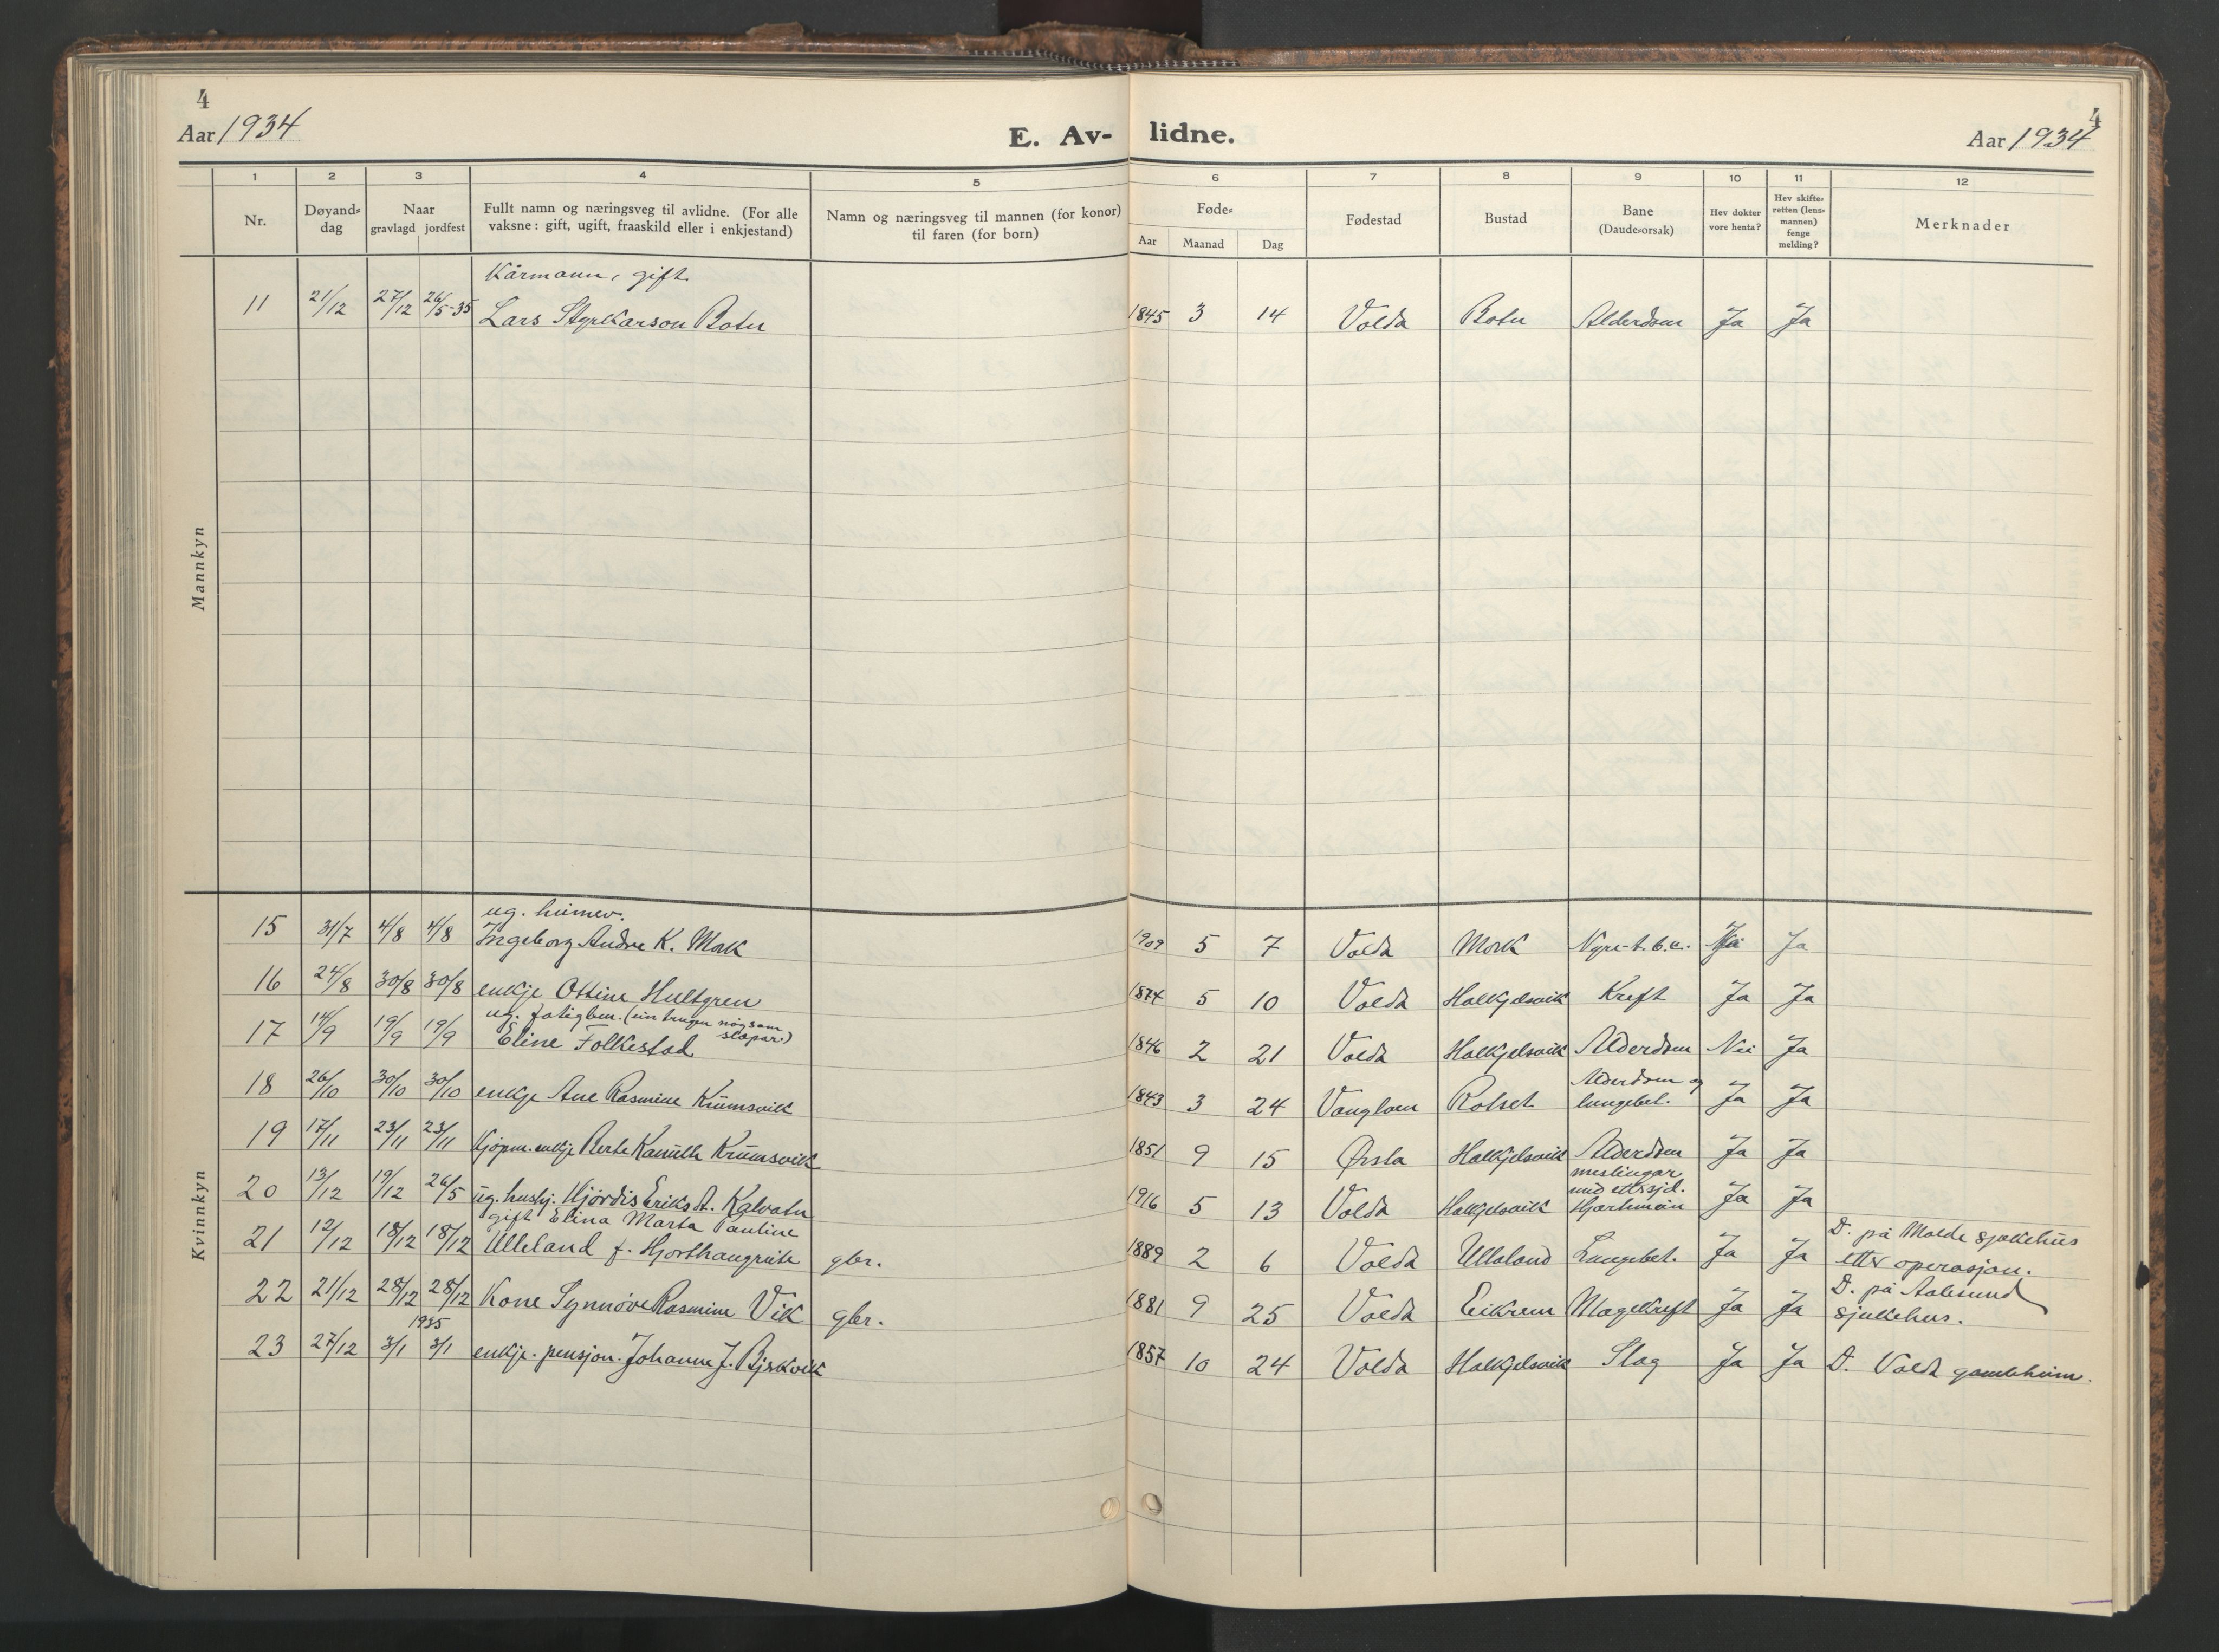 4
Aar 1934
E. Av-
lidne.
4
Aar 1934
1 2 3 4 5 6 7 8 9 10 11 12
Nr.
Døyand-
dag
Naar
gravlagd jordfest
Fullt namn og næringsveg til avlidne. (For alle
vaksne: gift, ugift, fraaskild eller i enkjestand)
Namn og næringsveg til mannen (for konor)
til faren (for born)
Føde-
Aar Maanad Dag
Fødestad
Bustad
Bane
(Daude-orsak)
Hev dokter
vore henta?
Hev skifte-
retten (lens-
mannen)
fenge
melding?
Merknader
Mannkyn
Kårmann, gift
11 21/12 27/12 26/5-35 Lars Styrkarson Botn 1845 3 14 Volda Botn Alderdom Ja Ja
Kvinnkyn
ug. heimev.
15 31/7 4/8 4/8 Ingeborg Andre K. Mork 1909 5 7 Volda Mork Nyre-t.b.c. Ja
16 24/8 30/8 30/8 enkje Ottine Hultgren 1874 5 10 Volda Halkjelsvik Kreft Ja Ja
ug. fatiglem.
17 14/9 19/9 19/9 Eline Folkestad 1846 2 21 Volda Halkjelsvik Alderdom Nei Ja
Alderdom og
18 26/10 30/10 30/10 enkje Ane Rasmine Krumsvik 1843 3 24 Vanylven Rotset lungebet. Ja Ja
19 17/11 23/11 23/11 Kjøpm. enkje Berte Kamilla Krumsvik 1851 9 15 Ørsta Halkjelsvik Alderdom Ja Ja
meslingar
med ettersjd.
20 13/12 19/12 26/5 ug. hushj. Hjördis Eriks d. Kalvatn 1916 5 13 Volda Halkjelsvik Ja Ja
gift Elina Marta Pauline
D. på Molde sjukehus
21 12/12 18/12 18/12 Ulleland f. Hjorthaugreite gbr. 1889 2 6 Volda Ulleland Lungebet. Ja Ja etter operasjon.
D. på Aalesund
22 21/12 28/12 28/12 Kone Synnøve Rasmine Vik gbr. 1881 9 25 Volda Eikrem Magekreft Ja Ja sjukehus.
1935
23 27/12 3/1 3/1 enkje. pensjon. Johanne J. Bjørkvik 1857 10 24 Volda Halkjelsvik Slag Ja Ja D. Volda gamleheim.